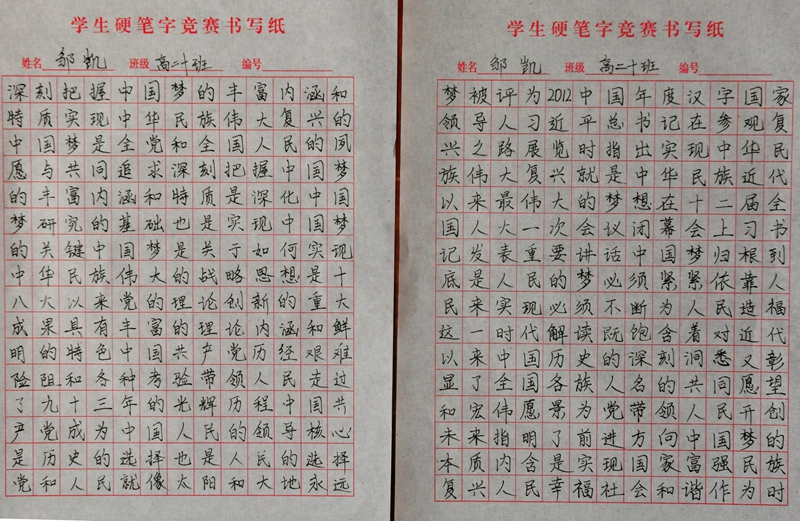 学生硬笔字竞赛书写纸
姓名 邹凯 班级 高二十班 编号
深刻把握中国梦的丰富内涵和
特质实现中华民族伟大复兴的
中国梦是全党和全国人民的夙
愿与共同追求深刻把握中国梦
的丰富内涵和特质是深化中国
梦研究的基础也是实现中国梦
的关键中国梦是关于如何实现
中华民族伟大的战略思想是十
八大以来党的理论创新的重大
成果具有丰富的理论内涵和鲜
明的特色中国共产党历经艰难
险阻和各种考验带领人民走过
了九十三年的光辉历程中国共
产党成为中国人民的领导核心
是历史的选择也是人民的选择
党和人民就像太阳和大地永远
学生硬笔字竞赛书写纸
姓名 邹凯 班级 高二十班 编号
梦被评为2012中国年度汉字国家
领导人习近平总书记在参观复
兴之路展览时指出实现中华民
族伟大复兴就是中华民族近代
以来最伟大的梦想在十二届全
国人大一次会议闭幕会上习书
记发表重要讲话中国梦归根到
底是人民的梦必须紧紧依靠人
民来实现必须不断为人民造福
这一时代解读既饱含着对近代
以来中国历史的深刻洞悉又彰
显了全国各族人名的共同愿望
和宏伟愿景为党带领人民开创
未来指明了前进方向中国梦的
本质内含是实现国家富强民族
复兴人民幸福社会和谐作为时